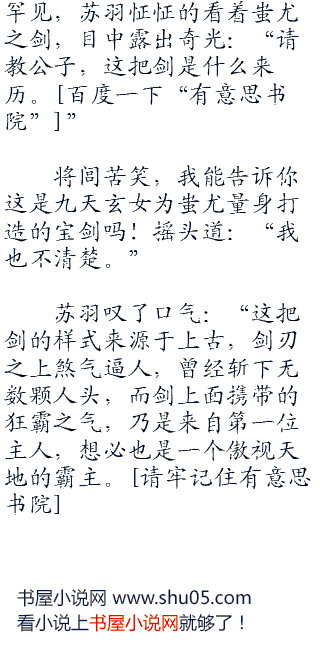 罕见，苏羽怔怔的看着蚩尤
之剑，目中露出奇光：“请
教公子，这把剑是什么来
历。[百度一下“有意思书
院”]”
将闾苦笑，我能告诉你
这是九天玄女为蚩尤量身打
造的宝剑吗！摇头道：“我
也不清楚。”
苏羽叹了口气：“这把
剑的样式来源于上古，剑刃
之上煞气逼人，曾经斩下无
数颗人头，而剑上面携带的
狂霸之气，乃是来自第一位
主人，想必也是一个傲视天
地的霸主。[请牢记住有意思
书院]
书屋小说网 www.shu05.com
看小说上书屋小说网就够了！